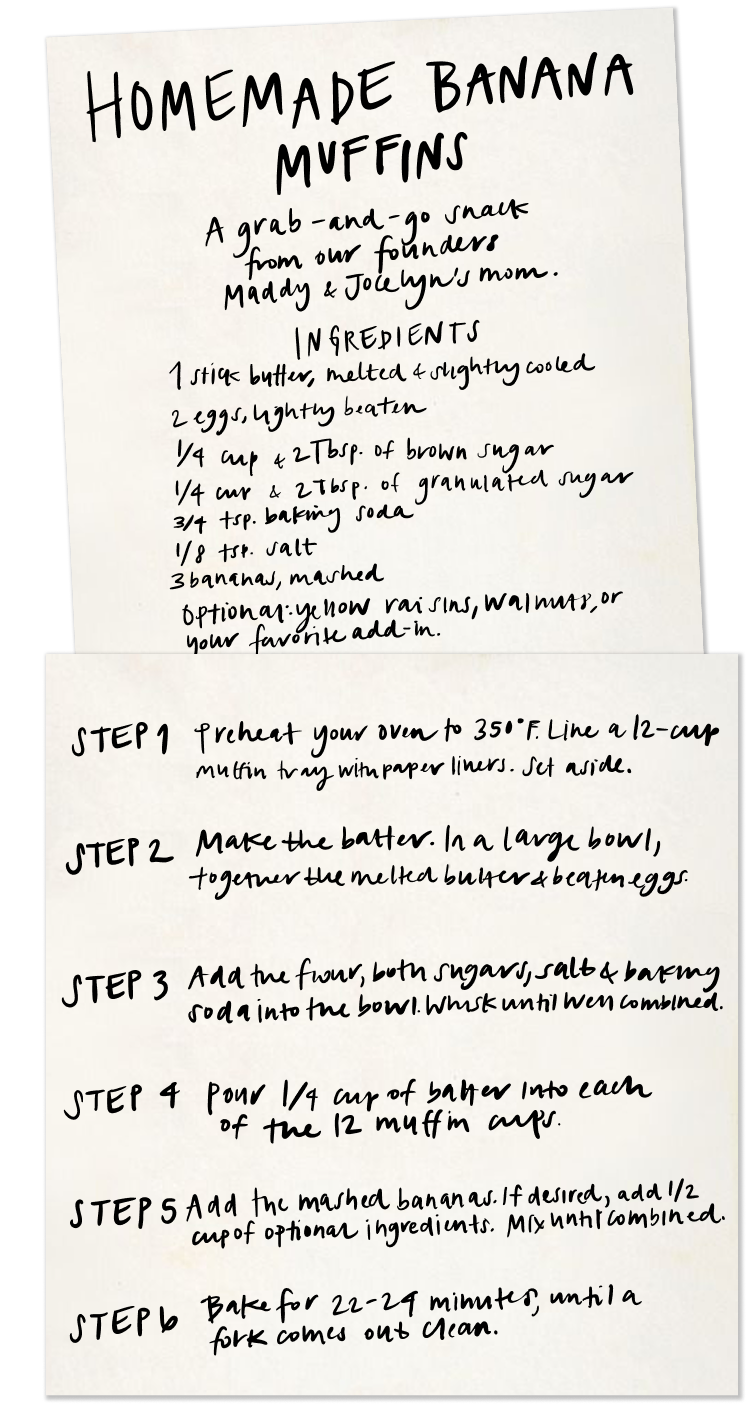 HOMEMADE BANANA
MUFFINS
A grab-and-go snack
from our founders
Maddy & Jocelyn's mom.
INGREDIENTS
1 stick butter, melted & slightly cooled
2 eggs, lightly beaten
1/4 cup & 2 Tbsp. of brown sugar
1/4 cup & 2 Tbsp. of granulated sugar
3/4 tsp. baking soda
1/8 tsp. salt
3 bananas, mashed
Optional: yellow raisins, walnuts, or
your favorite add-in.
STEP 1 Preheat your oven to 350°F. Line a 12-cup
muffin tray with paper liners. Set aside.
STEP 2 Make the batter. In a large bowl,
together the melted butter & beaten eggs.
STEP 3 Add the flour, both sugars, salt & baking
soda into the bowl. Whisk until well combined.
STEP 4 Pour 1/4 cup of batter into each
of the 12 muffin cups.
STEP 5 Add the mashed bananas. If desired, add 1/2
cup of optional ingredients. Mix until combined.
STEP 6 Bake for 22-24 minutes, until a
fork comes out clean.